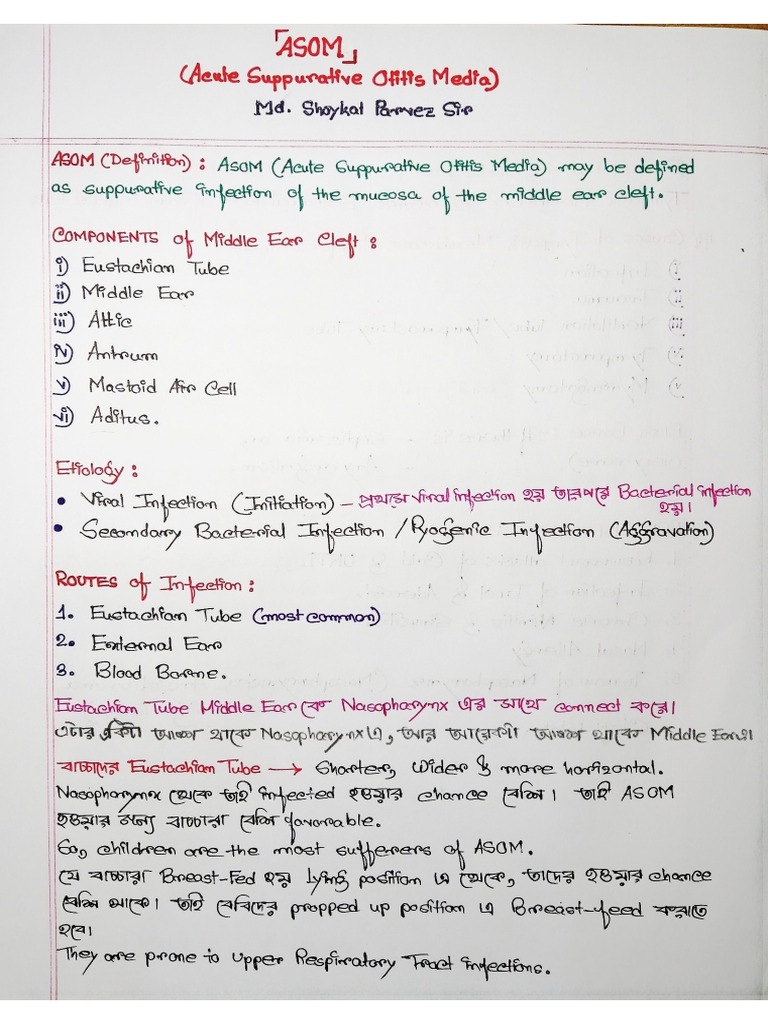 「ASOM」
(Acute Suppurative Otitis Media)
Md. Shoykat Parvez Sir
ASOM (Definition) : ASOM (Acute Suppurative Otitis Media) may be defined
as suppurative infection of the mucosa of the middle ear cleft.
COMPONENTS of Middle Ear Cleft :
i) Eustachian Tube
ii) Middle Ear
iii) Attic
iv) Antrum
v) Mastoid Air Cell
vi) Aditus.
Etiology :
• Viral Infection (Initiation) – প্রথমে Viral infection হয় তারপরে Bacterial infection
হয়।
• Secondary Bacterial Infection / Pyogenic Infection (Aggravation)
ROUTES of Infection :
1. Eustachian Tube (most common)
2. External Ear
3. Blood Borne.
Eustachian Tube Middle Ear কে Nasopharynx এর সাথে connect করে।
এটার একটা অংশ থাকে Nasopharynx এ, আর আরেকটা অংশ থাকে Middle Ear এ।
বাচ্চাদের Eustachian Tube → Shorter, Wider & more horizontal.
Nasopharynx থেকে তাই infected হওয়ার chance বেশি। তাই ASOM
হওয়ার জন্যে বাচ্চারা বেশি favorable.
So, children are the most sufferers of ASOM.
যে বাচ্চারা Breast-Fed হয় Lying position এ থেকে, তাদের হওয়ার chance
বেশি থাকে। তাই বেবিদের propped up position এ Breast-feed করাতে
হবে।
They are prone to Upper Respiratory Tract infections.